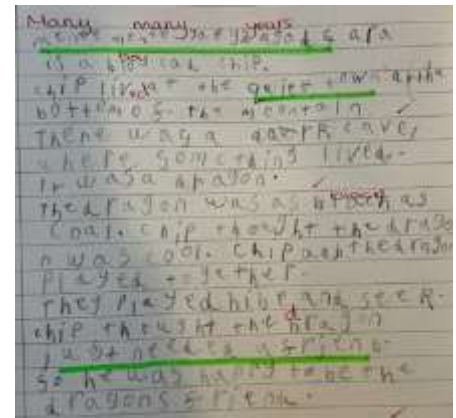 Many many years
is a boy cal chip.
chip lived at the quiet town at the
bottom of the mountain
There was a dark cave,
where something lived.
It was a dragon.
The dragon was as black as
coal. chip thought the drago
n was cool. Chip and the dragon
Played together.
They Played hide and seek.
chip thought the dragon
just needed a friend.
so he was happy to be the
dragons friend.